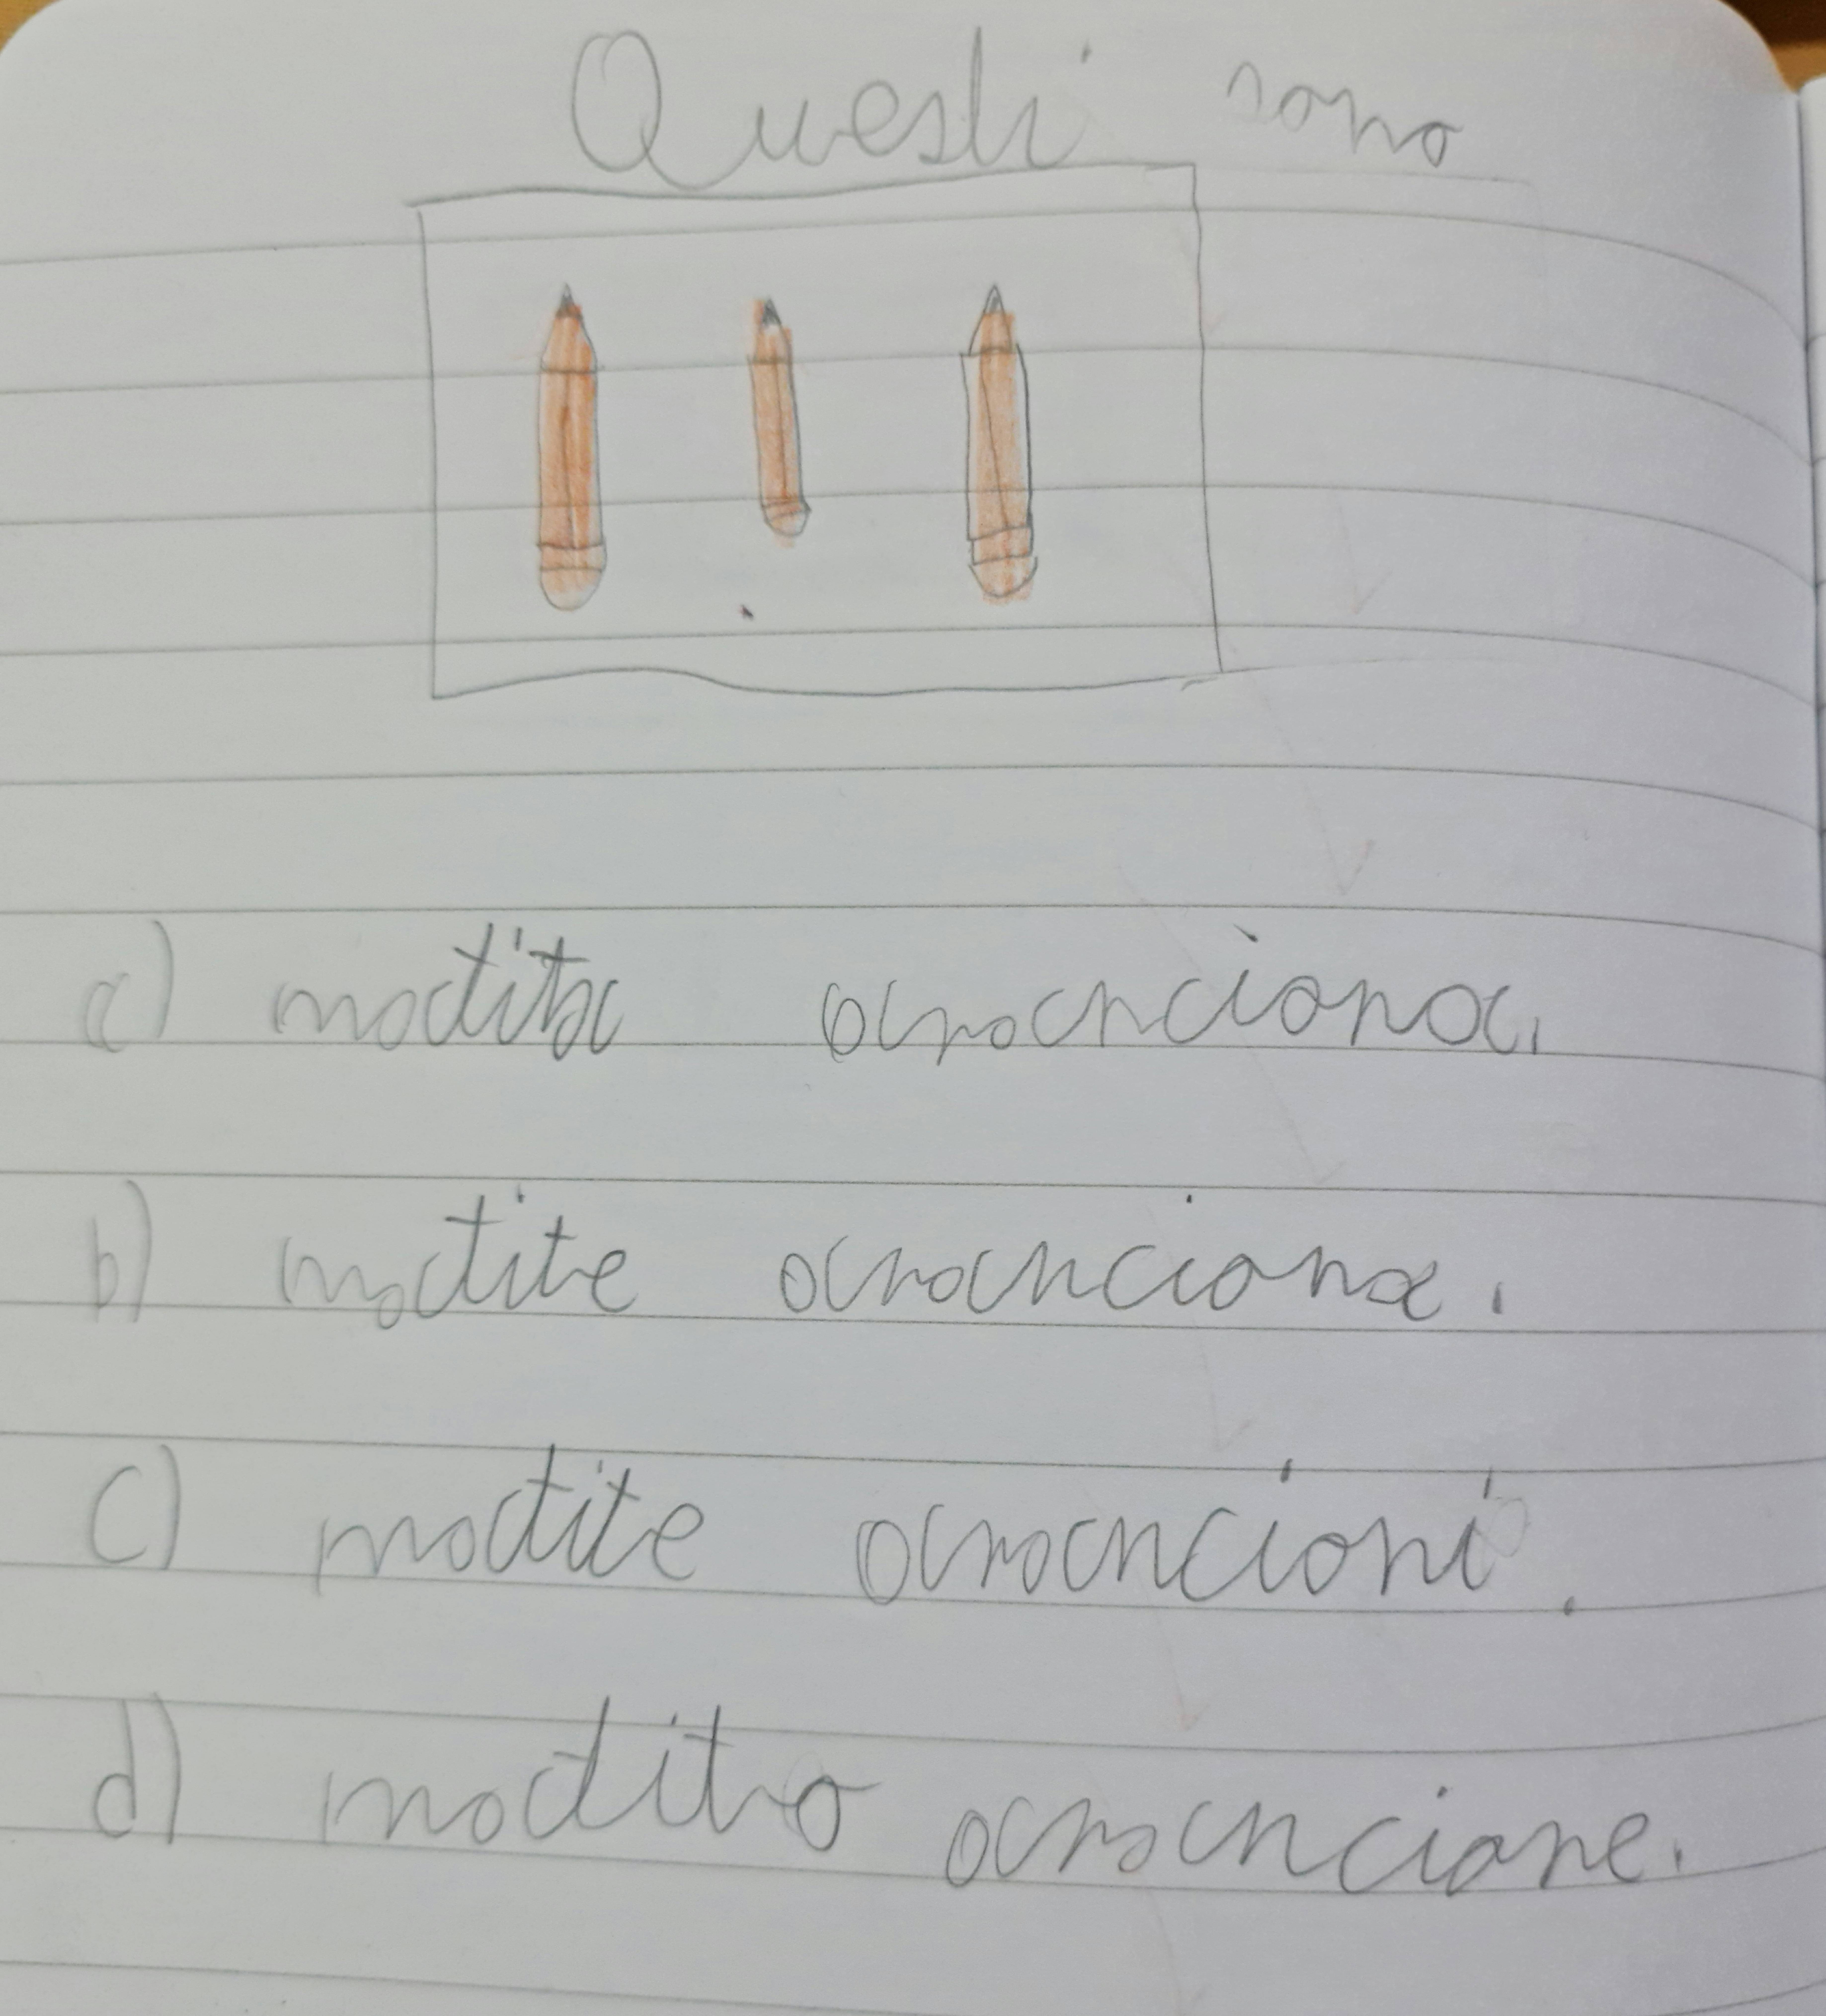 Questi sono
a) matita aranciona.
b) matite aranciona.
c) matite arancioni.
d) matito arancione.